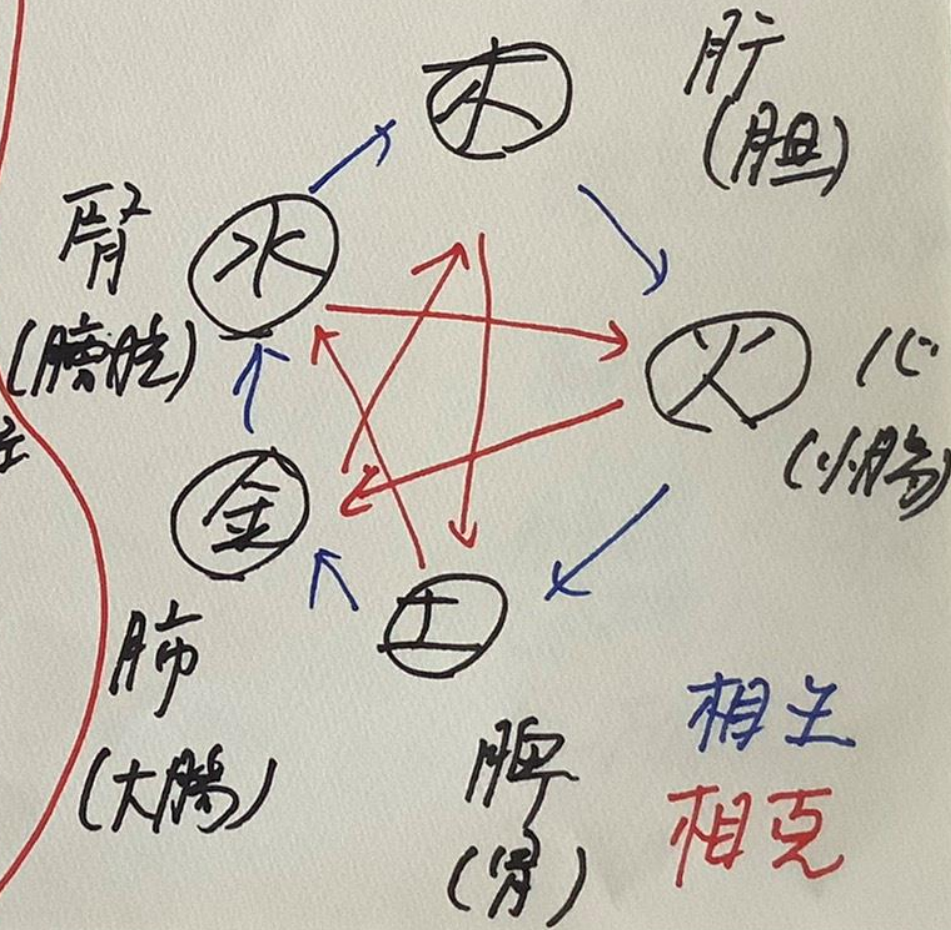 木
肝
(胆)
水
腎
(膀胱)
火
心
(小腸)
金
肺
(大腸)
土
脾
(胃)
相生
相克